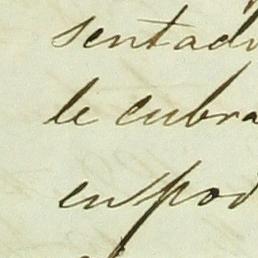 sentad
le cubra
en pod